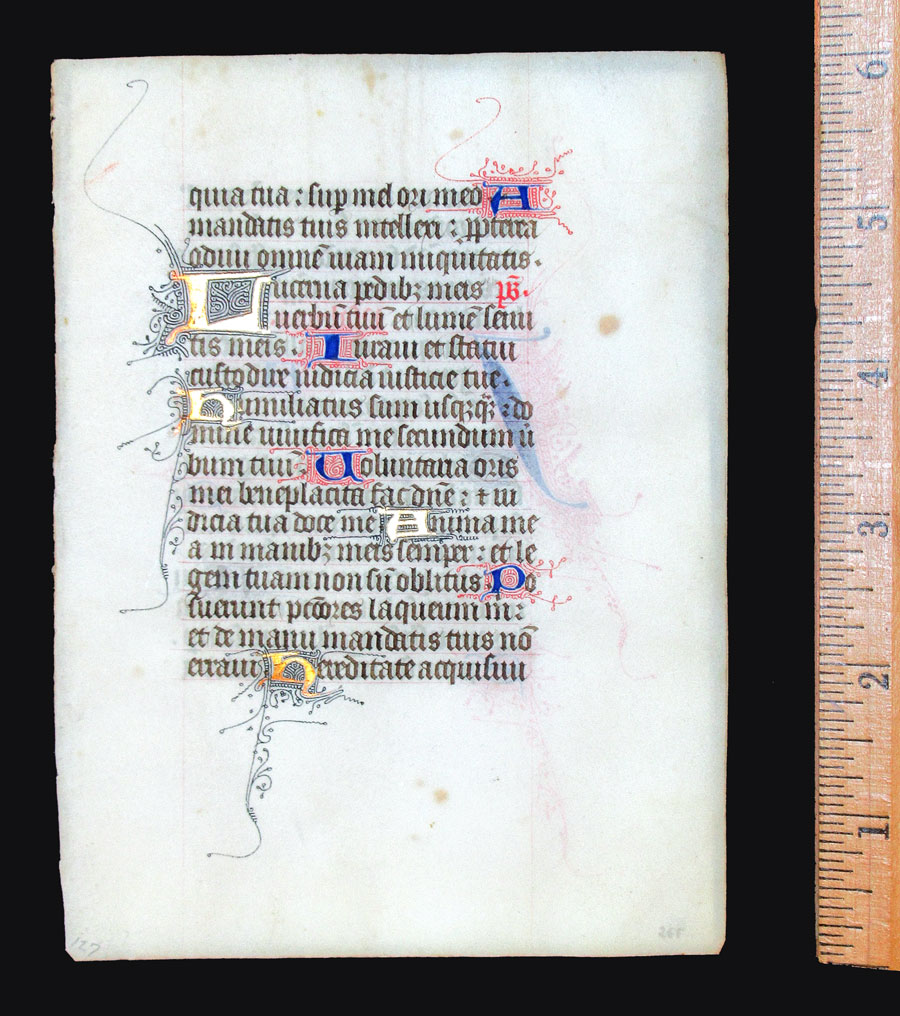 quia tua : sup mel ori meo A
mandatis tuis intellexi : ppterea
odiui omnē uiam iniquitatis.
Lucerna pedibꝫ meis ps̄.
uerbū tuū et lumē semi
tis meis : Iuraui et statui
custodire iudicia iusticie tue.
Humiliatus sum usqꝫqꝫ : do
mine uiuifica me secundum ū
bum tuū : Uoluntaria oris
mei beneplacita fac dn̄e : et iu
dicia tua doce me Anima me
a in manibꝫ meis semper : et le
gem tuam non sū oblitus Po
suerunt pccōres laqueum m :
et de manu mandatis tuis nō
erraui Hereditate acquisiui
127
6
5
4
3
2
1